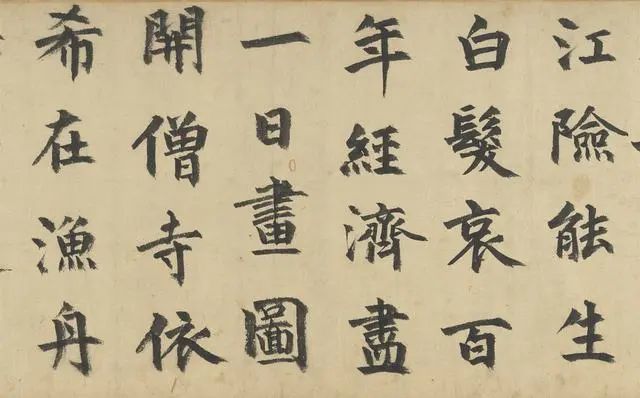 江險能生
白髮哀百
年經濟盡
一日畫圖
開僧寺依
希在漁舟